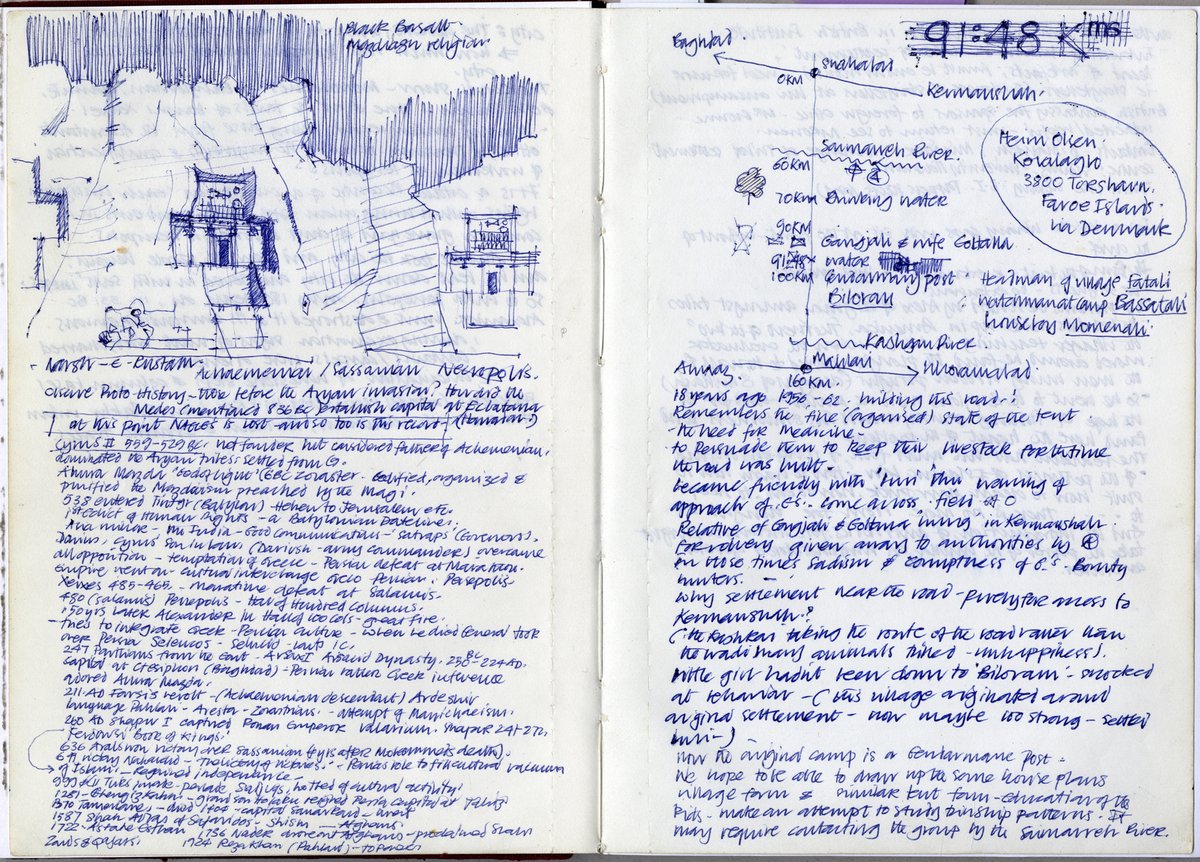 Black Basalt.
religion
Naqsh-e-Rustam. Achaemenian / Sassanian Necropolis.
Obscure Proto-History – those before the Aryan invasion? Howard the
Medes (mentioned 836 BC) establish capital at Ecbatana
at this point Notes is lost – and so too is this record – (Hamadan)
Cyrus II 559-529 BC. not founder but considered father of Achaemenian,
dominated the Aryan tribes: settled from
Ahura Mazda 'God of light' (6BC Zoroaster. codified, organized &
purified the Mazdaism preached by the Magi.
538 entered Tintyr (Babylon) – Hebrew to Jerusalem etc.
1st edict of Human Rights – a Babylonian Dateline.
Asia minor – India – Good Communication – Satraps (Governors).
Darius, Cyrus' Son in law (Dariush – army commander) overcame
all opposition – temptation of Greece – Persian defeat at Marathon.
Empire went on – cultural interchange Persian. Persepolis.
Xerxes 485-465 – maritime defeat at Salamis.
480 (Salamis) Persepolis – Hall of Hundred columns.
150 yrs later Alexander in Hall of 100 cols – great fire.
– tried to integrate Greek – Persian culture – when he died General took
over Persia Selencos
247 Parthians from the East – Arsace I Arsacid Dynasty. 250 BC – 224 AD.
capital at Ctesiphon (Baghdad) – Persian rather Greek influence
adored Ahura Mazda.
211 AD Farsis revolt – (Achaemenian descendant) Ardeshir
language Pahlavi – Avesta – Zoroastrians – attempt of Manichaeism.
260 AD Shapur I captured Roman Emperor Valarium. Shapur 241-272.
Ferdowsi 'Book of Kings'.
636 Arabs won victory over Sassanian (4 yrs after Mohommed's death).
641 victory Nehavand – 'the victory of victories' – Persia's role to fill cultural vacuum
of Islam. – Regained independence –
999 AD Turks invade – pervade, Saljuqs, hotbed of cultural activity
1251 – Ghengiz Kahn – grandson Hulaku reigned Persia Capital at Tabriz
1370 Tamerlane, – died 1404 – capital Samarkand – Herat
1587 Shah Abbas of Safavides – Shiism – Afghans.
1722 – Isfahan 1736 Nader drove out Afghans – proclaimed Shah
Zands & Qajars. 1924 Reza Khan (Pahlavi) – to power
91:48 Kms
Baghdad.
Shahabad
0KM
Kermanshah.
Saimarreh River.
60KM
70KM Drinking water
90KM
Gangali & wife Goltana
91:48 water
100KM Gendarmerie post
Biloran
Heini Olsen
3800 Torshavn.
Faroe Islands.
via Denmark
Headman of village Fatali
hatzimanatcamp Bassatali
houseboy Momenali.
Kashgan River
Ahwaz. Mahlan Khoramabad.
160KM.
18 years ago 1956-62. building this road:-
Remembers the fine (organised) state of the tent.
the need for Medicine –
to Persuade them to keep their livestock for the time
the road was built –
became friendly with 'Luri' thru' warning of
approach of G's. – come across. field of O
Relative of Gangali & Goltana living in Kermanshah.
For robbery given away to authorities by
in those times Sadism & corruptness of G's. – Bounty
hunters. –
why settlement near the road – purely for access to
Kermanshah?
(the Kashkai taking the route of the road rather than
the wadi many animals killed – unhappiness).
little girl hadn't been down to 'Biloran' – shocked
at behavior – (this village originated around
original settlement – now maybe too strong – settled
Luri –)
now the original camp is a Gendarmarie Post.
We hope to be able to draw up the same house plans
village form & similar tent form – education of the
kids – make an attempt to study kinship patterns. It
may require contacting the group by the Saimarreh River.